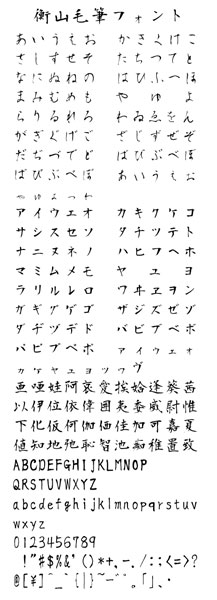 衡山毛筆フォント
あいうえお かきくけこ
さしすせそ たちつてと
なにぬねの はひふへほ
まみむめも や ゆ よ
らりるれろ わゐゑをん
がぎぐげご ざじずぜぞ
だぢづでど ばびぶべぼ
ぱぴぷぺぽ ぁぃぅぇぉ
ゃゅょっゎ
アイウエオ カキクケコ
サシスセソ タチツテト
ナニヌネノ ハヒフヘホ
マミムメモ ヤ ユ ヨ
ラリルレロ ワヰヱヲン
ガギグゲゴ ザジズゼゾ
ダヂヅデド バビブベボ
パピプペポ ァィゥェォ
ヵヶャュョッヮ ヴ
亜唖娃阿哀愛挨姶逢葵茜
以伊位依偉囲夷委威尉惟
下化仮何伽価佳加可嘉夏
値知地弛恥智池痴稚置致
ABCDEFGHIJKLMNOP
QRSTUVWXYZ
abcdefghijklmnop qrstuv
wxyz
0123456789
!"#$%&'()*+,-./:;<=>?
@[¥]^_`{|}~ー゛゜。「」、・